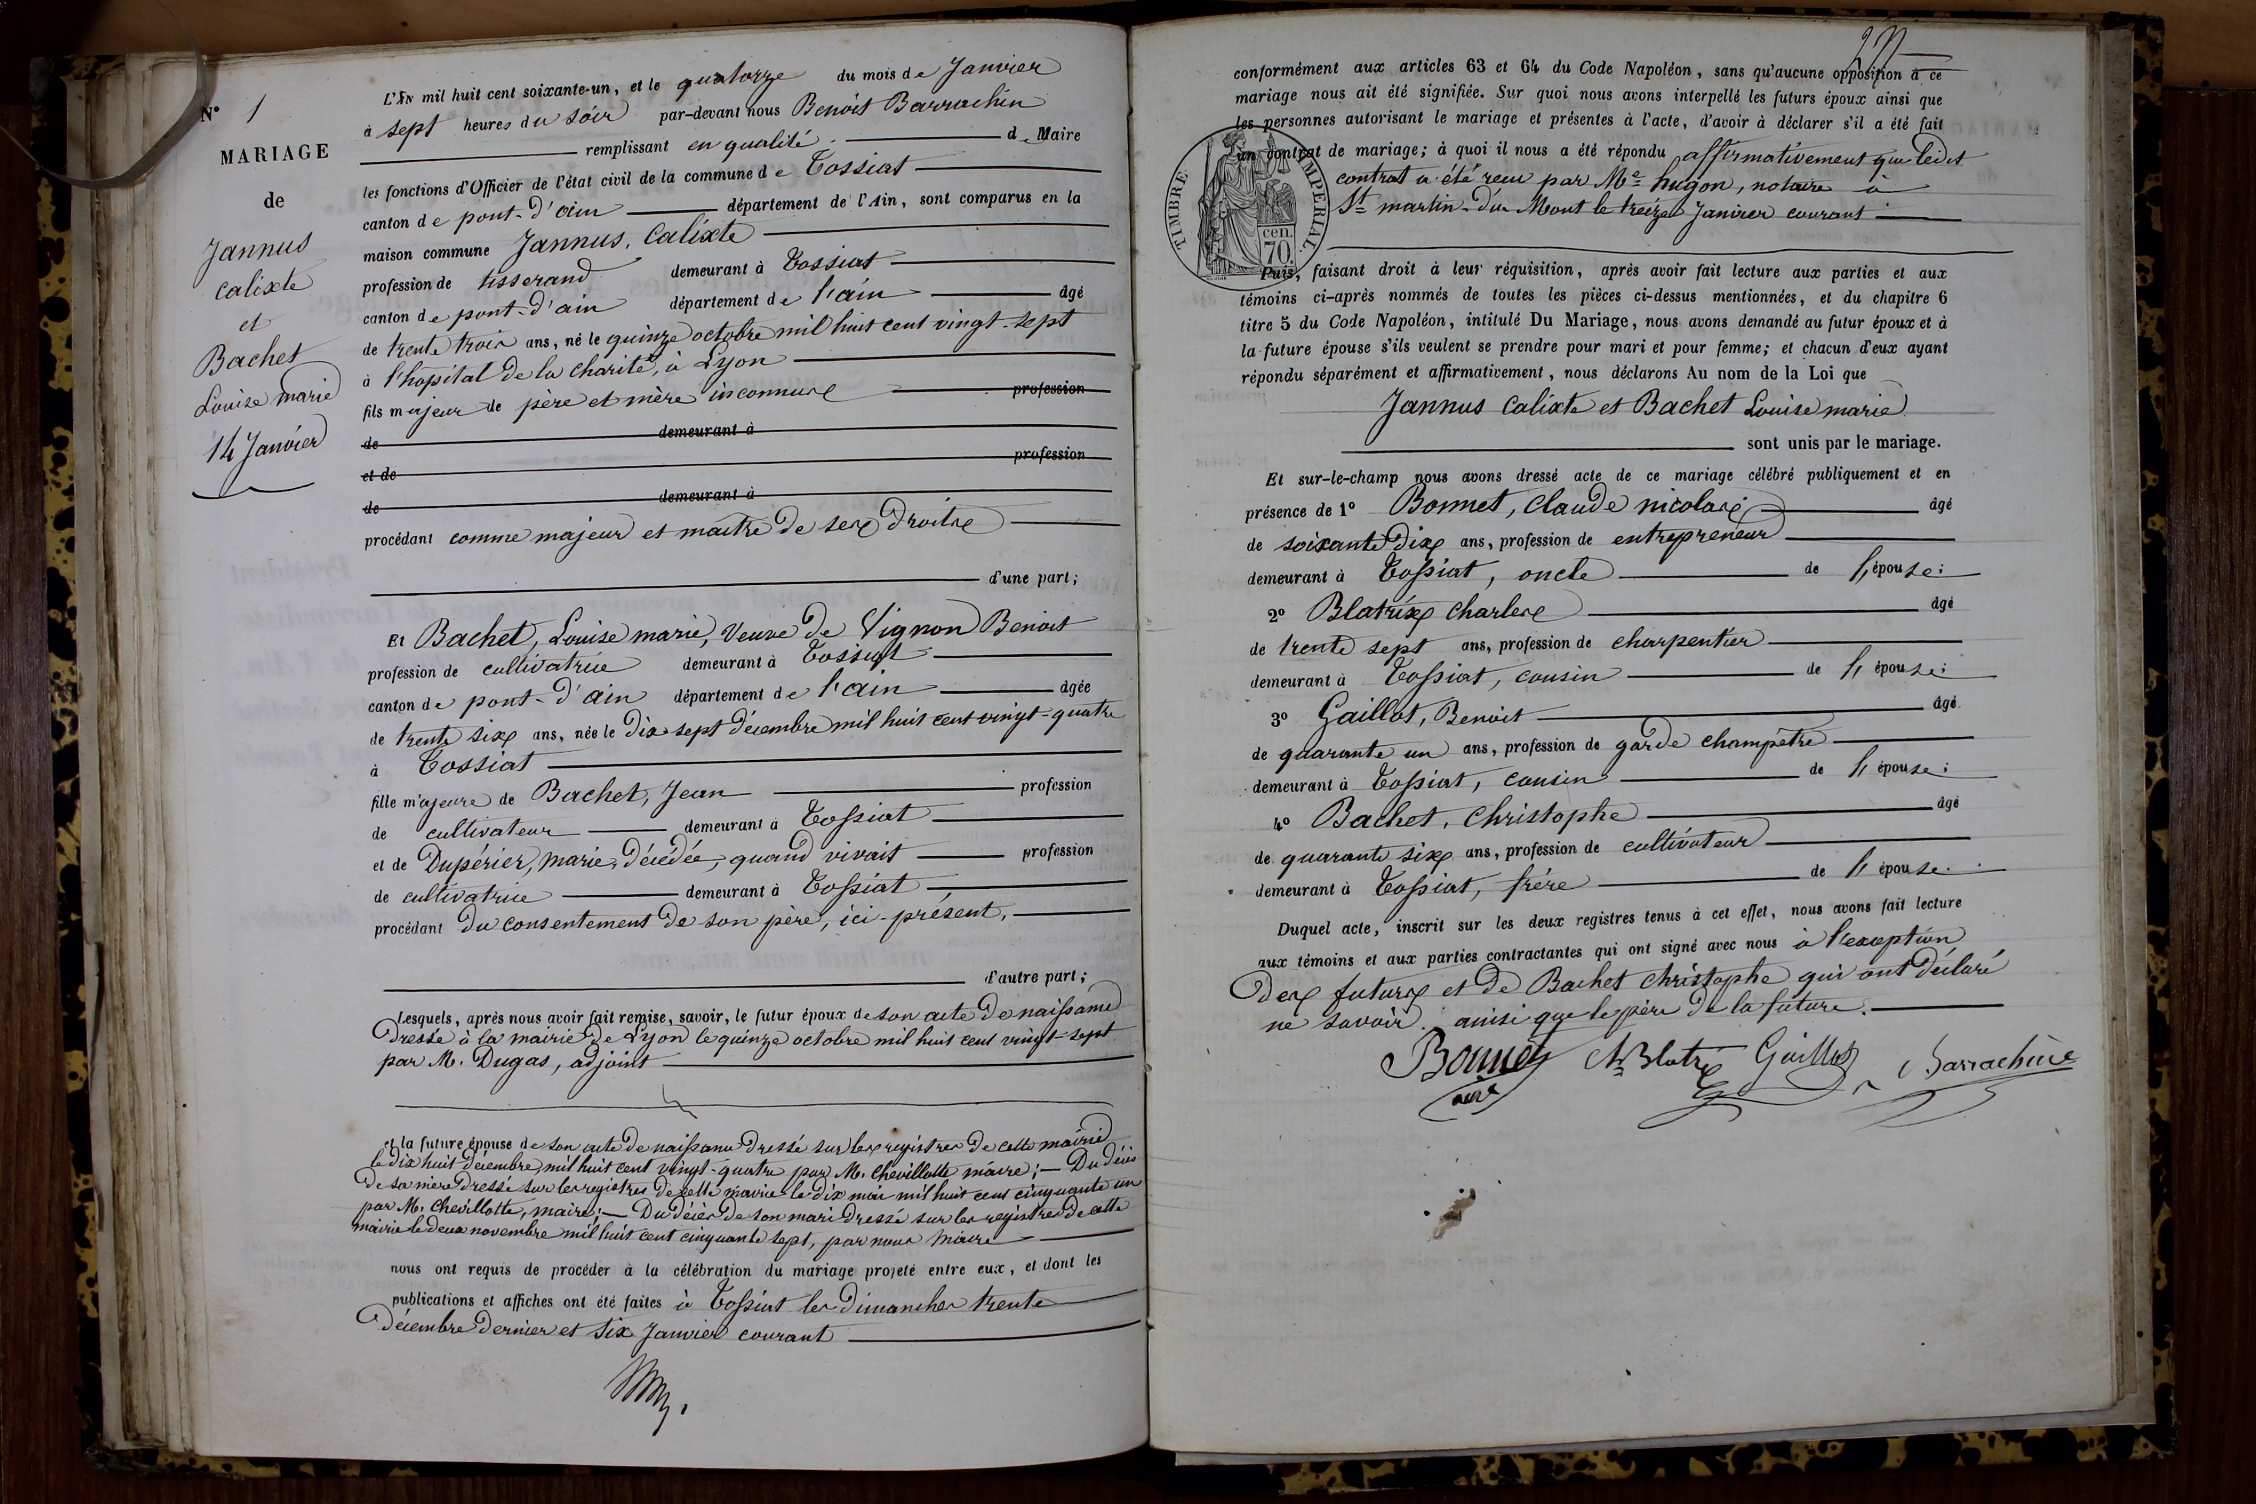 N° 1
MARIAGE
de
Jannus
calixte
et
Bachet
Louise marie
14 Janvier
L'AN mil huit cent soixante-un, et le quatorze du mois de Janvier
à sept heures du soir par-devant nous Benoit Barrachin
remplissant en qualité. d. Maire
les fonctions d'Officier de l'état civil de la commune de Tossiat
canton de pont-d'ain département de l'Ain, sont comparus en la
maison commune Jannus, Calixte
profession de tisserand demeurant à Tossiat
canton de pont-d'ain département de l'ain âgé
de trente trois ans, né le quinze octobre mil huit cent vingt-sept
à l'hopital de la charité, à Lyon
fils majeur de père et mère inconnus profession
de demeurant à
et de profession
de demeurant à
procédant comme majeur et maitre de ses droits
d'une part;
Et Bachet, Louise marie, Veuve de Vignon Benoit
profession de cultivatrice demeurant à Tossiat
canton de pont-d'ain département de l'ain âgée
de trente six ans, née le dix sept décembre mil huit cent vingt-quatre
à Tossiat
fille majeure de Bachet, Jean profession
de cultivateur demeurant à Tossiat
et de Dupérier, marie, décédée, quand vivait profession
de cultivatrice demeurant à Tossiat
procédant du consentement de son père, ici-présent,
d'autre part;
Lesquels, après nous avoir fait remise, savoir, le futur époux de son acte de naissance
dressé à la mairie de Lyon le quinze octobre mil huit cent vingt-sept
par M. Dugas, adjoint
et la future épouse de son acte de naissance dressé sur les registres de cette mairie
le dix huit décembre mil huit cent vingt-quatre par M. Chevillotte maire; — Du décès
de sa mère dressé sur les registres de cette mairie le dix mai mil huit cent cinquante un
par M. Chevillotte, maire; — Du décès de son mari dressé sur les registres de cette
mairie le deux novembre mil huit cent cinquante sept, par nous Maire
nous ont requis de procéder à la célébration du mariage projeté entre eux, et dont les
publications et affiches ont été faites à Tossiat les dimanches trente
décembre dernier et six Janvier courant
conformément aux articles 63 et 64 du Code Napoléon, sans qu'aucune opposition à ce
mariage nous ait été signifiée. Sur quoi nous avons interpellé les futurs époux ainsi que
les personnes autorisant le mariage et présentes à l'acte, d'avoir à déclarer s'il a été fait
un contrat de mariage; à quoi il nous a été répondu affirmativement que ledit
contrat a été recu par Me hugon, notaire à
St martin-du Mont le treize Janvier courant
TIMBRE IMPERIAL
cen.
70.
Puis, faisant droit à leur réquisition, après avoir fait lecture aux parties et aux
témoins ci-après nommés de toutes les pièces ci-dessus mentionnées, et du chapitre 6
titre 5 du Code Napoléon, intitulé Du Mariage, nous avons demandé au futur époux et à
la future épouse s'ils veulent se prendre pour mari et pour femme; et chacun d'eux ayant
répondu séparément et affirmativement, nous déclarons Au nom de la Loi que
Jannus Calixte et Bachet Louise marie
sont unis par le mariage.
Et sur-le-champ nous avons dressé acte de ce mariage célébré publiquement et en
présence de 1° Bonnet, Claude nicolas; âgé
de soixante dix ans, profession de entrepreneur
demeurant à Tossiat, oncle de l'épouse;
2° Blatrix Charles âgé
de trente sept ans, profession de charpentier
demeurant à Tossiat, cousin de l'épouse;
3° Gaillot, Benoit âgé
de quarante un ans, profession de garde champêtre
demeurant à Tossiat, cousin de l'épouse;
4° Bachet, Christophe âgé
de quarante six ans, profession de cultivateur
demeurant à Tossiat, frère de l'épouse.
Duquel acte, inscrit sur les deux registres tenus à cet effet, nous avons fait lecture
aux témoins et aux parties contractantes qui ont signé avec nous à l'exception
des futurs et de Bachet Christophe qui ont déclaré
ne savoir. ainsi que le père de la future.
Bonnet Blatrix Gaillot Barrachin